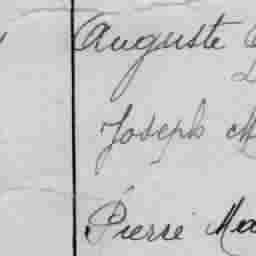 Auguste
Joseph M
Pierre Ma